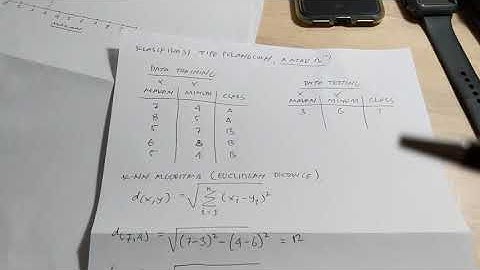 KLASIFIKASI TIPE PELANGGAN, A ATAU B
DATA TRAINING
DATA TESTING
MAKAN MINUM CLASS
MAKAN MINUM CLASS
7 4 A
3 6 ?
8 5 A
5 7 B
6 8 B
5 4 B
K-NN ALGORITMA (EUCLIDIAN DISTANCE)
d(x,y) = √ n Σ i=1 (xi-yi)²
d(7,4) = √(7-3)²-(4-6)² = 12